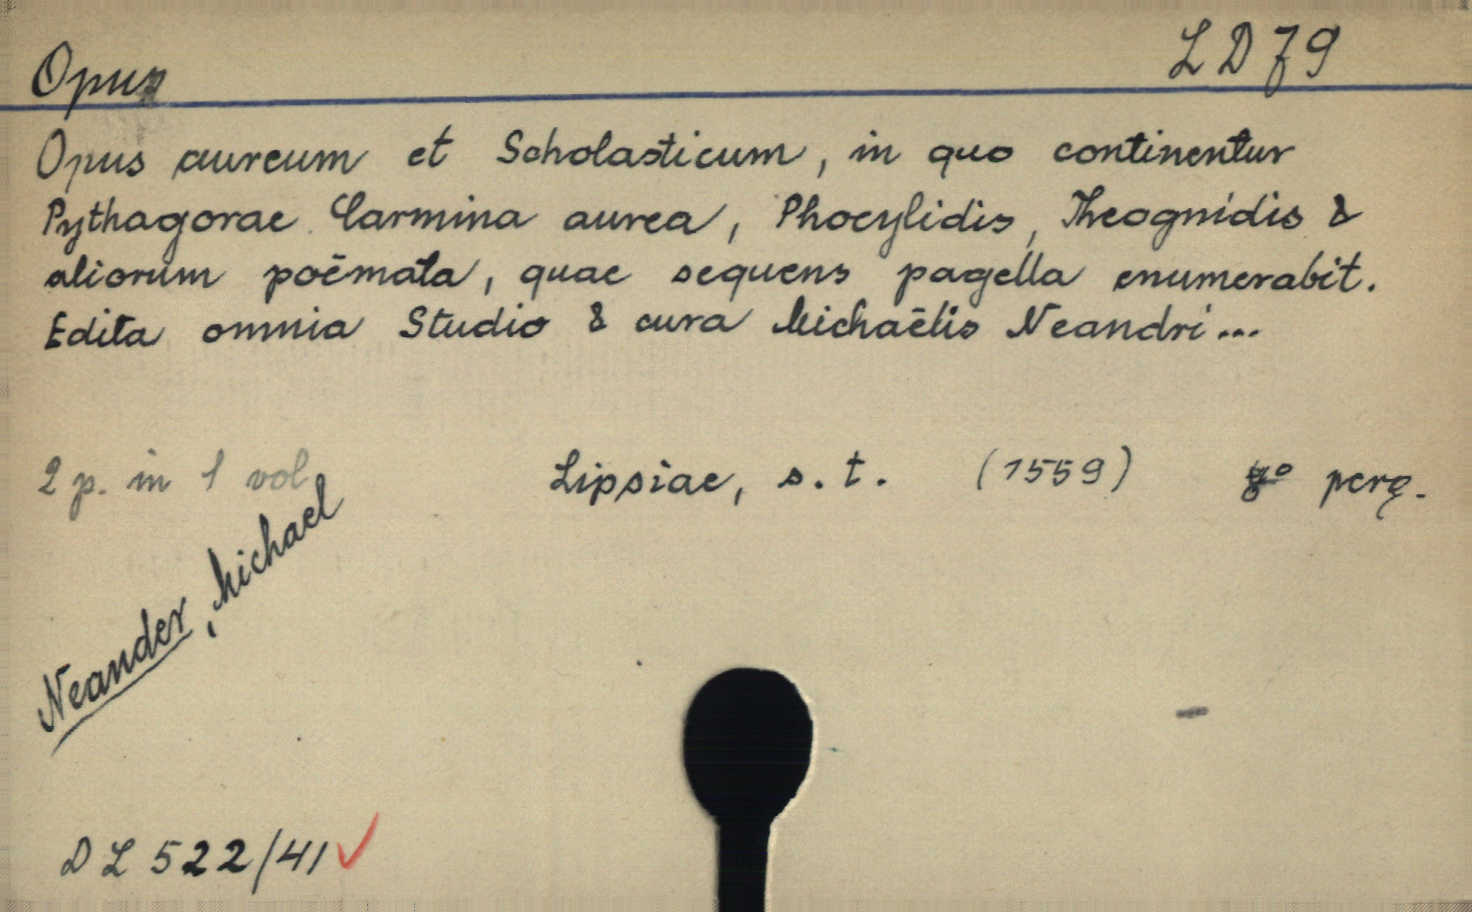 Opus
LD 79
Opus aureum et Scholasticum, in quo continentur
Pythagorae Carmina aurea, Phocylidis, Theognidis &
aliorum poëmata, quae sequens pagella enumerabit.
Edita omnia Studio & cura Michaëlis Neandri...
2 p. in 1 vol
Lipsiae, s. t. (1559) perg.
Neander, Michael
DL 522/41